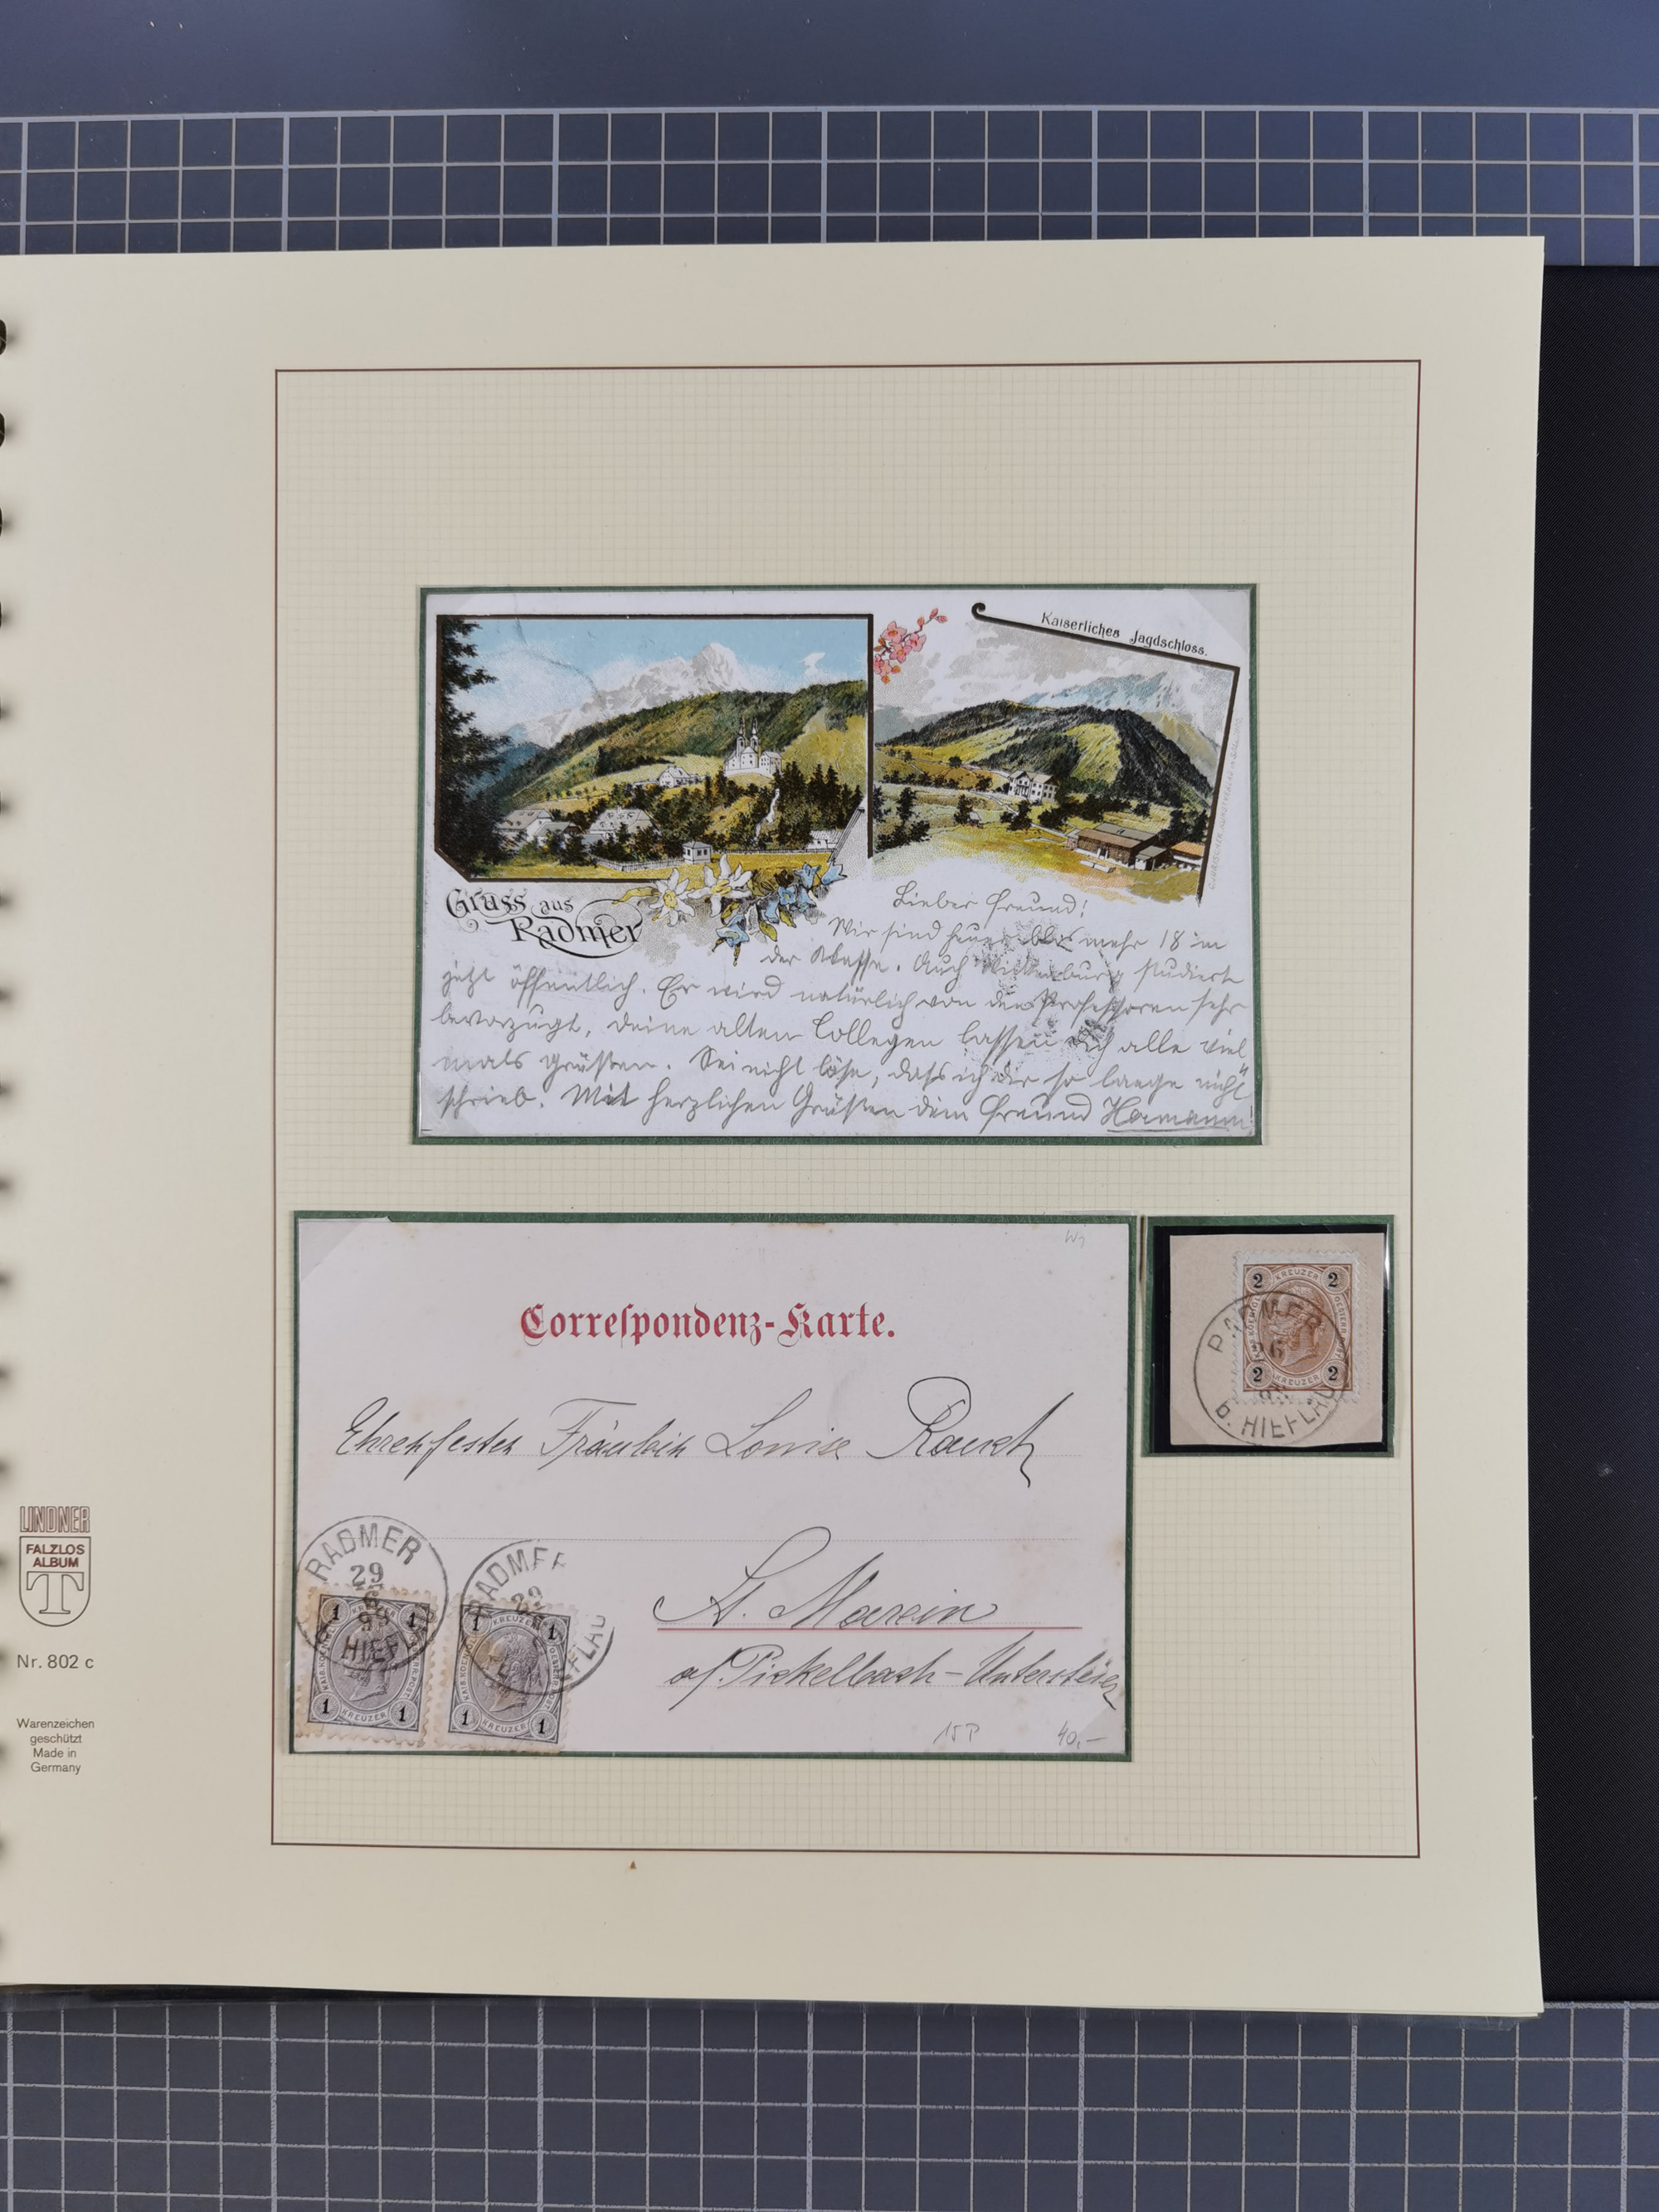 Kaiserliches Jagdschloss.
Gruss aus
Radmer
Lieber Freund!
Wir sind heuer blos mehr 18 in
der Klasse. Auch studiert
jetzt öffentlich. Er wird natürlich von den Professoren sehr
bevorzugt. Deine alten Collegen lassen dich alle viel
mals grüßen. Sei nicht böse, dass ich dir so lange nicht
schrieb. Mit herzlichen Grüßen dein Freund Hermann!
Correſpondenz-Karte.
Ehrenfesten Fräulein Louise Rauch
St. Marein
a/ Pickelbach - Untersteier
15P
40,-
RADMER
29
6
99
HIEF
1 KREUZER 1
1 KREUZER 1
RADMER
29
HIEFLAU
1 KREUZER 1
1 KREUZER 1
2 KREUZER 2
RADMER
26
b. HIEFLAU
2 KREUZER 2
LINDNER
FALZLOS
ALBUM
T
Nr. 802 c
Warenzeichen
geschützt
Made in
Germany